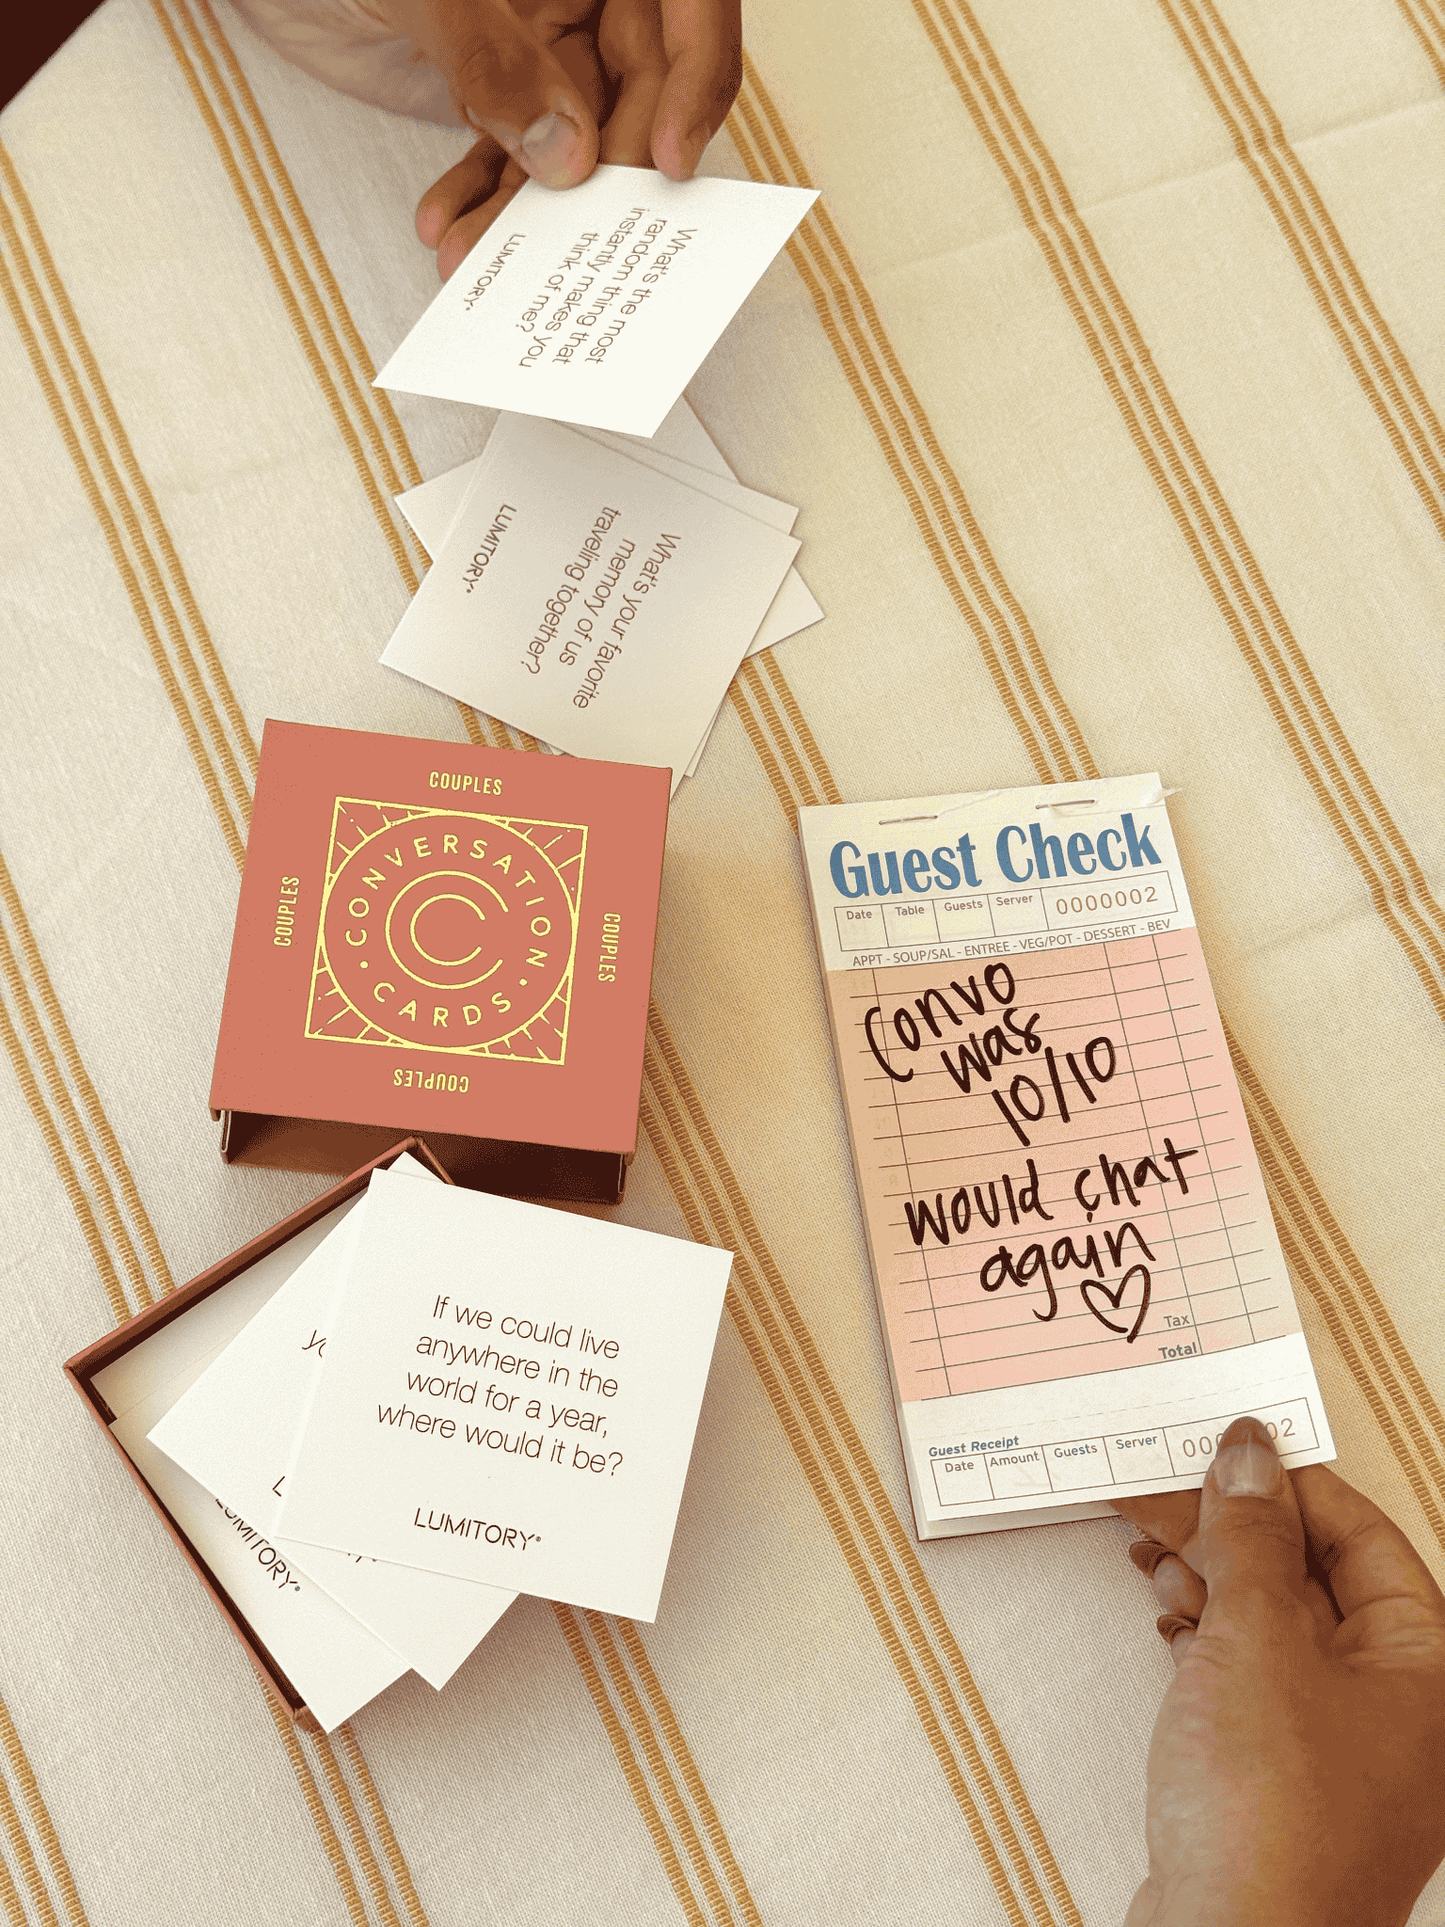 What's the most
random thing that
instantly makes you
think of me?
LUMITORY®
What's your favorite
memory of us
traveling together?
LUMITORY®
COUPLES
COUPLES
COUPLES
COUPLES
CONVERSATION
• CARDS •
C
If we could live
anywhere in the
world for a year,
where would it be?
LUMITORY®
LUMITORY®
Guest Check
Date Table Guests Server 0000002
APPT - SOUP/SAL - ENTREE - VEG/POT - DESSERT - BEV
Convo
was
10/10
would chat
again
Tax
Total
Guest Receipt
Date Amount Guests Server